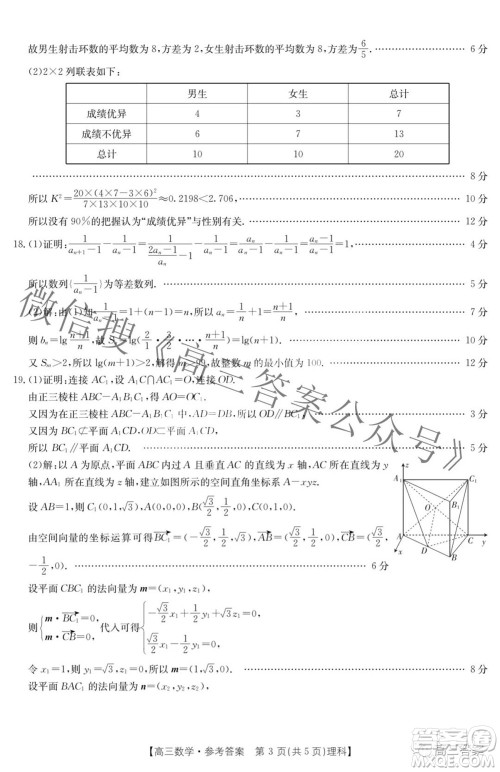 故男生射击环数的平均数为8,方差为2,女生射击环数的平均数为8,方差为6/5. 6分
(2)2×2列联表如下:
男生 女生 总计
成绩优异 4 3 7
成绩不优异 6 7 13
总计 10 10 20
8分
所以K²=20×(4×7-3×6)²/(7×13×10×10)≈0.2198<2.706, 10分
所以没有90%的把握认为“成绩优异”与性别有关. 12分
18.(1)证明:1/(aₙ₊₁-1)-1/(aₙ-1)=1/((2aₙ-1)/aₙ-1)-1/(aₙ-1)=aₙ/(aₙ-1)-1/(aₙ-1)=1, 4分
所以数列{1/(aₙ-1)}为等差数列. 5分
(2)解:由(1)知1/(aₙ-1)=1+(n-1)=n,所以aₙ=1/n+1=(n+1)/n. 7分
则bₙ=lg (n+1)/n,故Sₙ=lg(2/1·3/2·…·(n+1)/n)=lg(n+1). 9分
又Sₘ>2,所以lg(m+1)>2,解得m>99,故整数m的最小值为100. 12分
19.(1)证明:连接AC₁,设A₁C∩AC₁=O,连接OD.
由正三棱柱ABC-A₁B₁C₁,可得AO=OC₁.
又因为在正三棱柱ABC-A₁B₁C₁中,AD=DB,所以OD∥BC₁. 3分
又因为BC₁⊄平面A₁CD,OD⊂平面A₁CD,
所以BC₁∥平面A₁CD. 5分
(2)解:以A为原点,平面ABC内过A且垂直AC的直线为x轴,AC所在的直线为y
轴,AA₁所在直线为z轴,建立如图所示的空间直角坐标系A-xyz.
设AB=1,则C₁(0,1,√3),A(0,0,0),B(√3/2,1/2,0),C(0,1,0),
由空间向量的坐标运算可得BC₁=(-√3/2,1/2,√3),AB=(√3/2,1/2,0),CB=(√3/2,
-1/2,0). 6分
设平面CBC₁的法向量为m=(x₁,y₁,z₁),
则{m·BC₁=0, m·CB=0,代入可得{-√3/2x₁+1/2y₁+√3z₁=0, √3/2x₁-1/2y₁=0,
令x₁=1,则y₁=√3,z₁=0,所以m=(1,√3,0). 8分
设平面BAC₁的法向量为n=(x₂,y₂,z₂),
z
A₁
C₁
B₁
O
A
C
y
x
D
B
【高三数学·参考答案 第3页(共5页)理科】
微信搜《高三答案公众号》